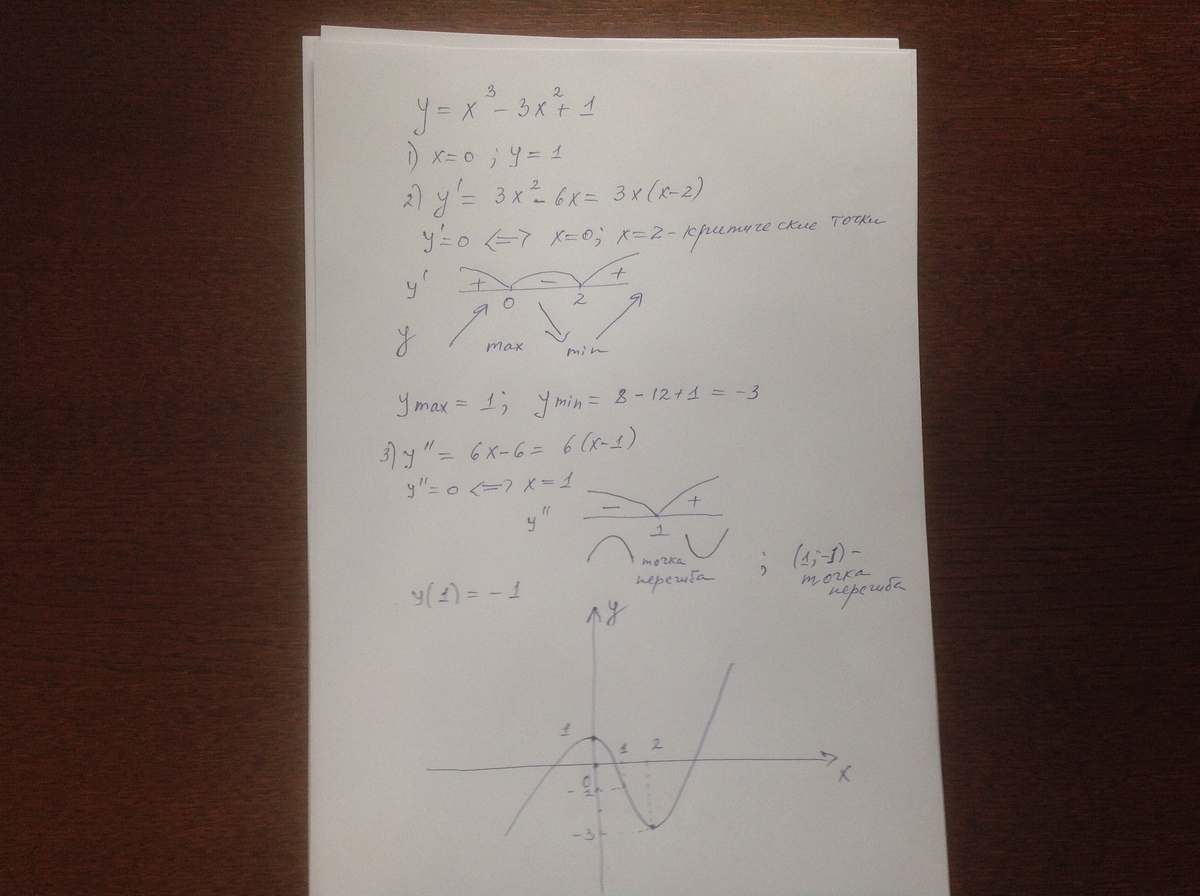 y = x³ - 3x² + 1
1) x=0 ; y = 1
2) y' = 3x² - 6x = 3x(x-2)
y'=0 <=> x=0; x=2 - критические точки
y' + - +
0 2
y max min
y max = 1; y min = 8 - 12 + 1 = -3
3) y'' = 6x - 6 = 6(x-1)
y''=0 <=> x=1
y'' - +
1
точка перегиба
; (1;-1) - точка перегиба
y(1) = -1
y
1
1 2
0
x
-1
-3